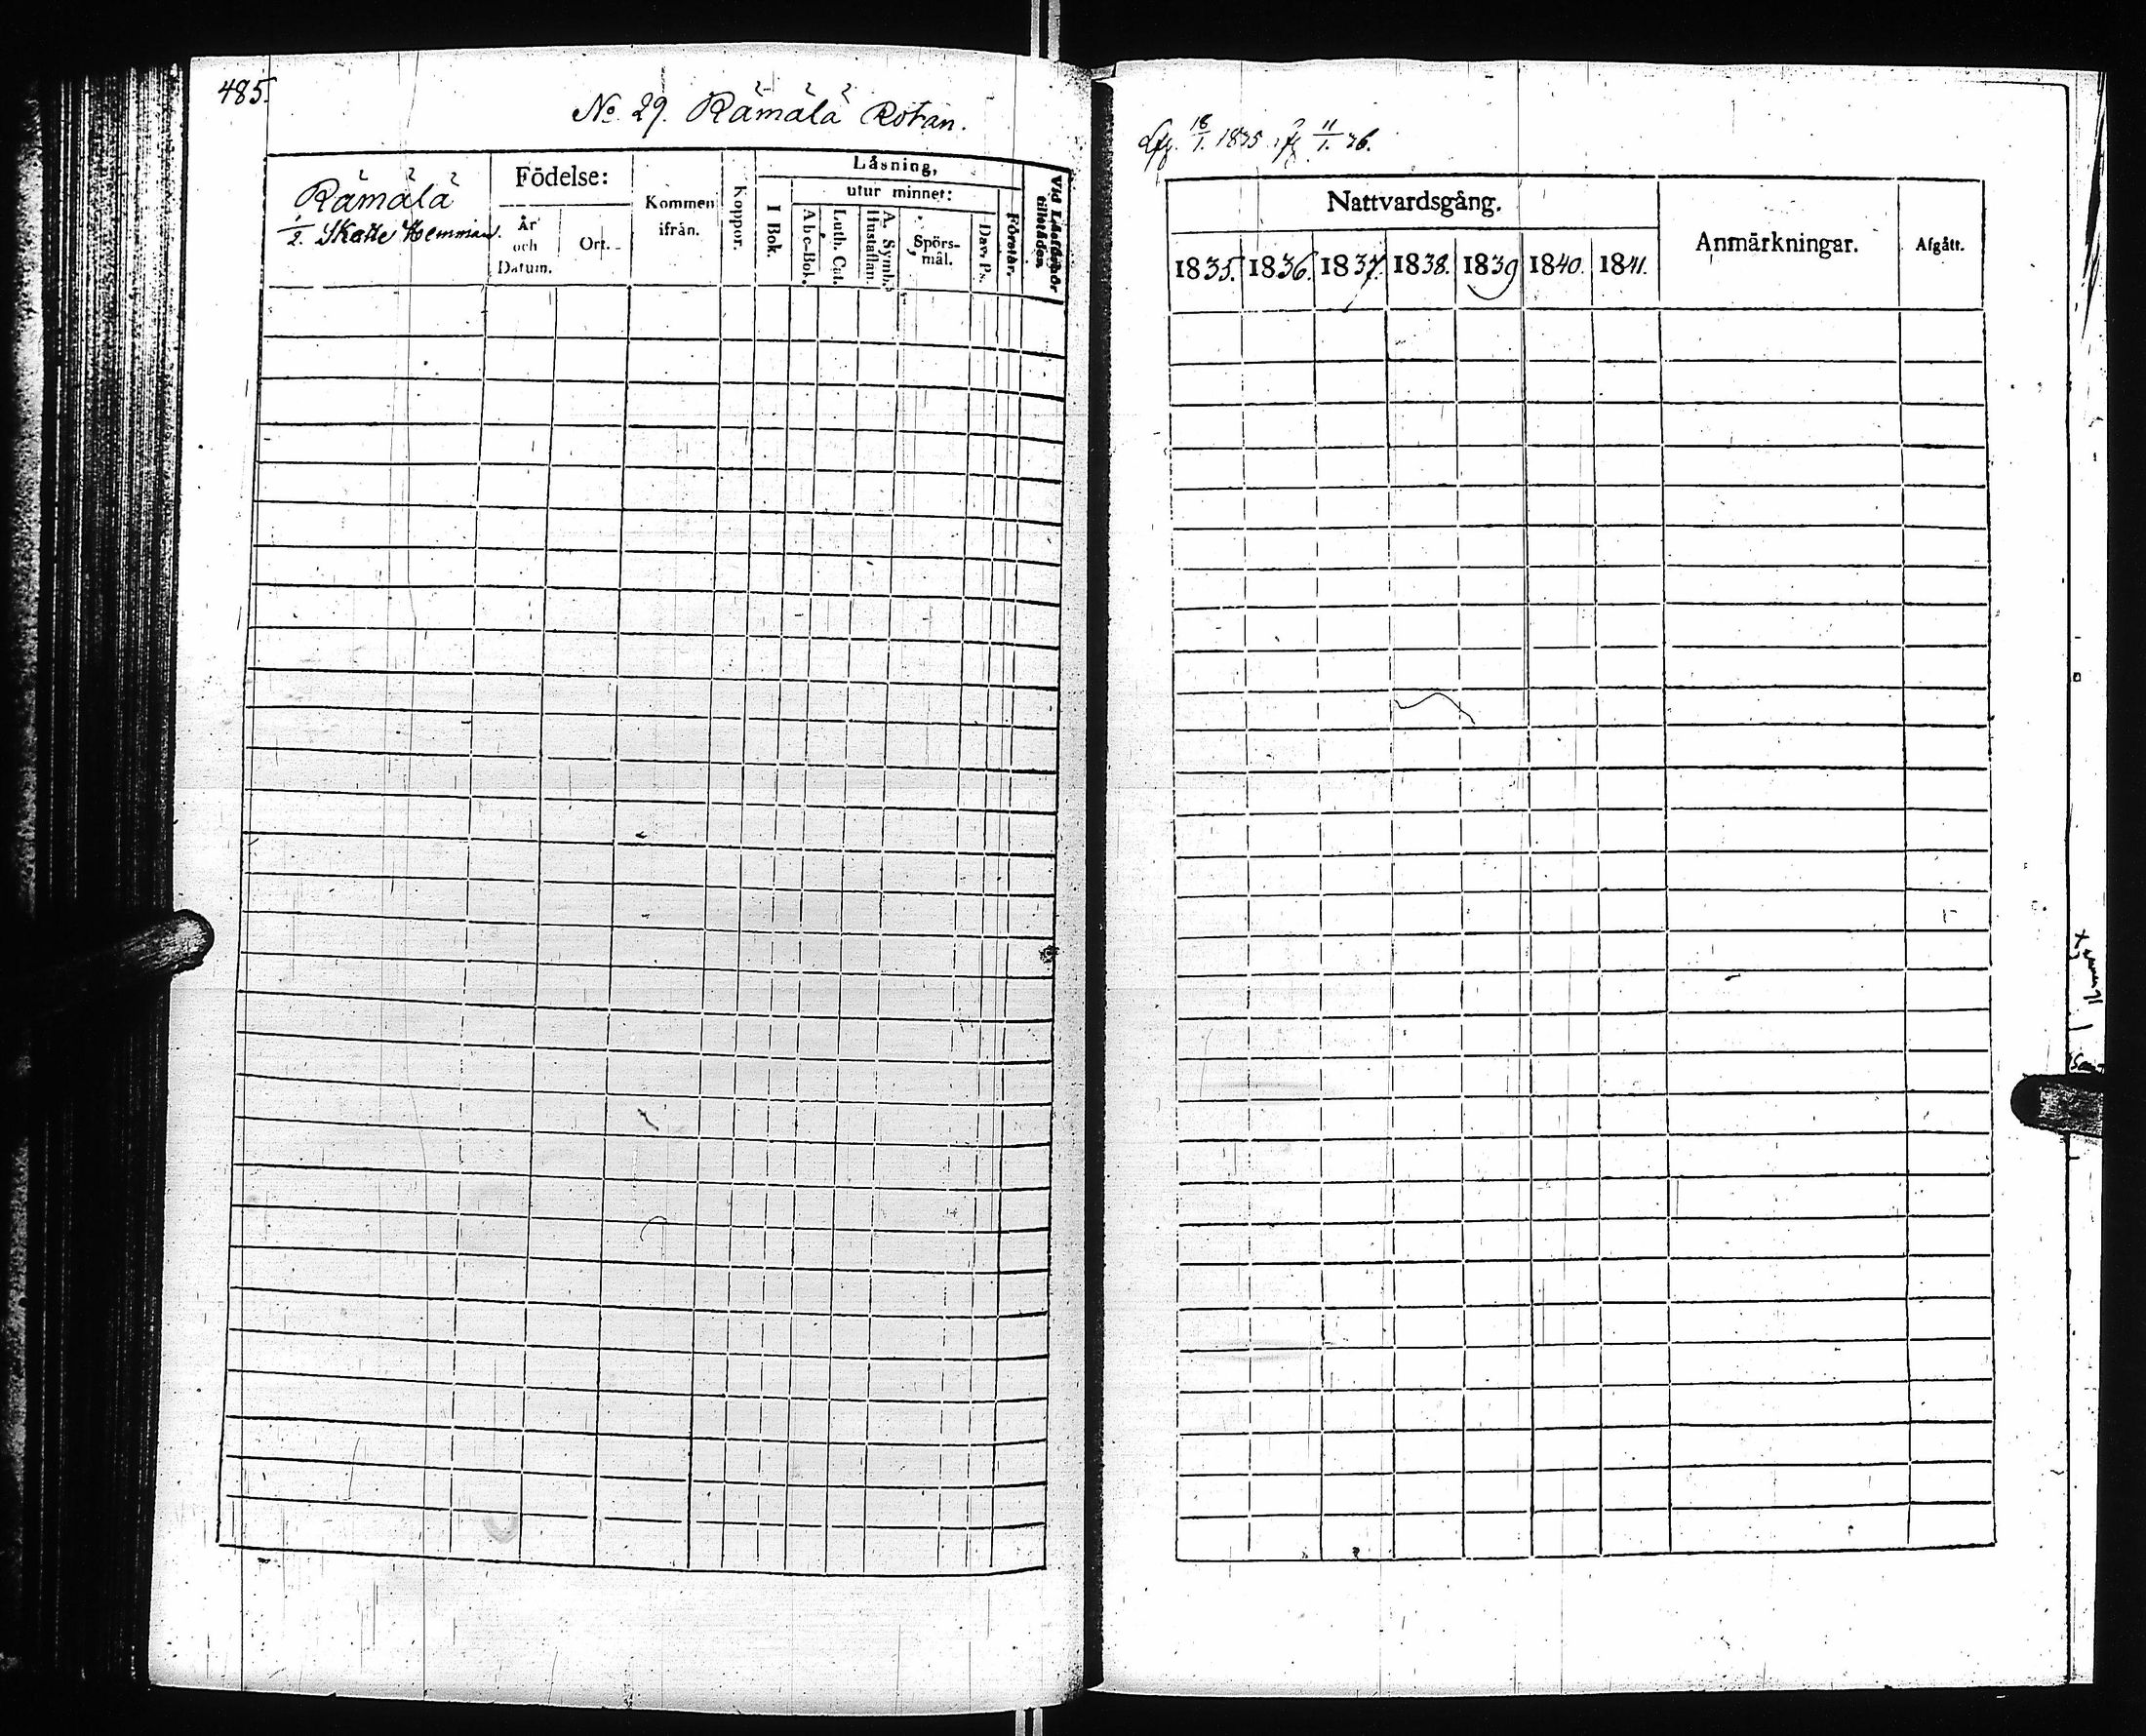 485.
No. 29. Rämälä Rotan.
Rämälä
1/2. Skatte Hemman.
Födelse:
År och Datum.
Ort.
Kommen ifrån.
Koppor.
Läsning,
I Bok.
utur minnet:
A b c-Bok.
Luth. Cat.
A. Symb. Hustaflan.
Spörs-mål.
Dav. Ps.
Förstår.
Vid Läsförhör tillstädes
18/1. 1835 11/1. 36.
Nattvardsgång.
1835. 1836. 1837. 1838. 1839 1840. 1841.
Anmärkningar.
Afgått.